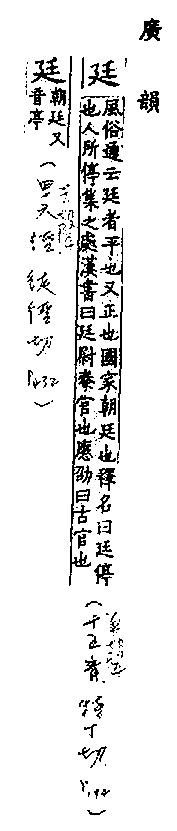 廣韻
廷
風俗通云廷者平也又正也國家朝廷也釋名曰廷停
也人所停集之處漢書曰廷尉秦官也應劭曰古官也
(十五青 特丁切
廷
朝廷又
音亭
(四六徑 徒徑切 P432)